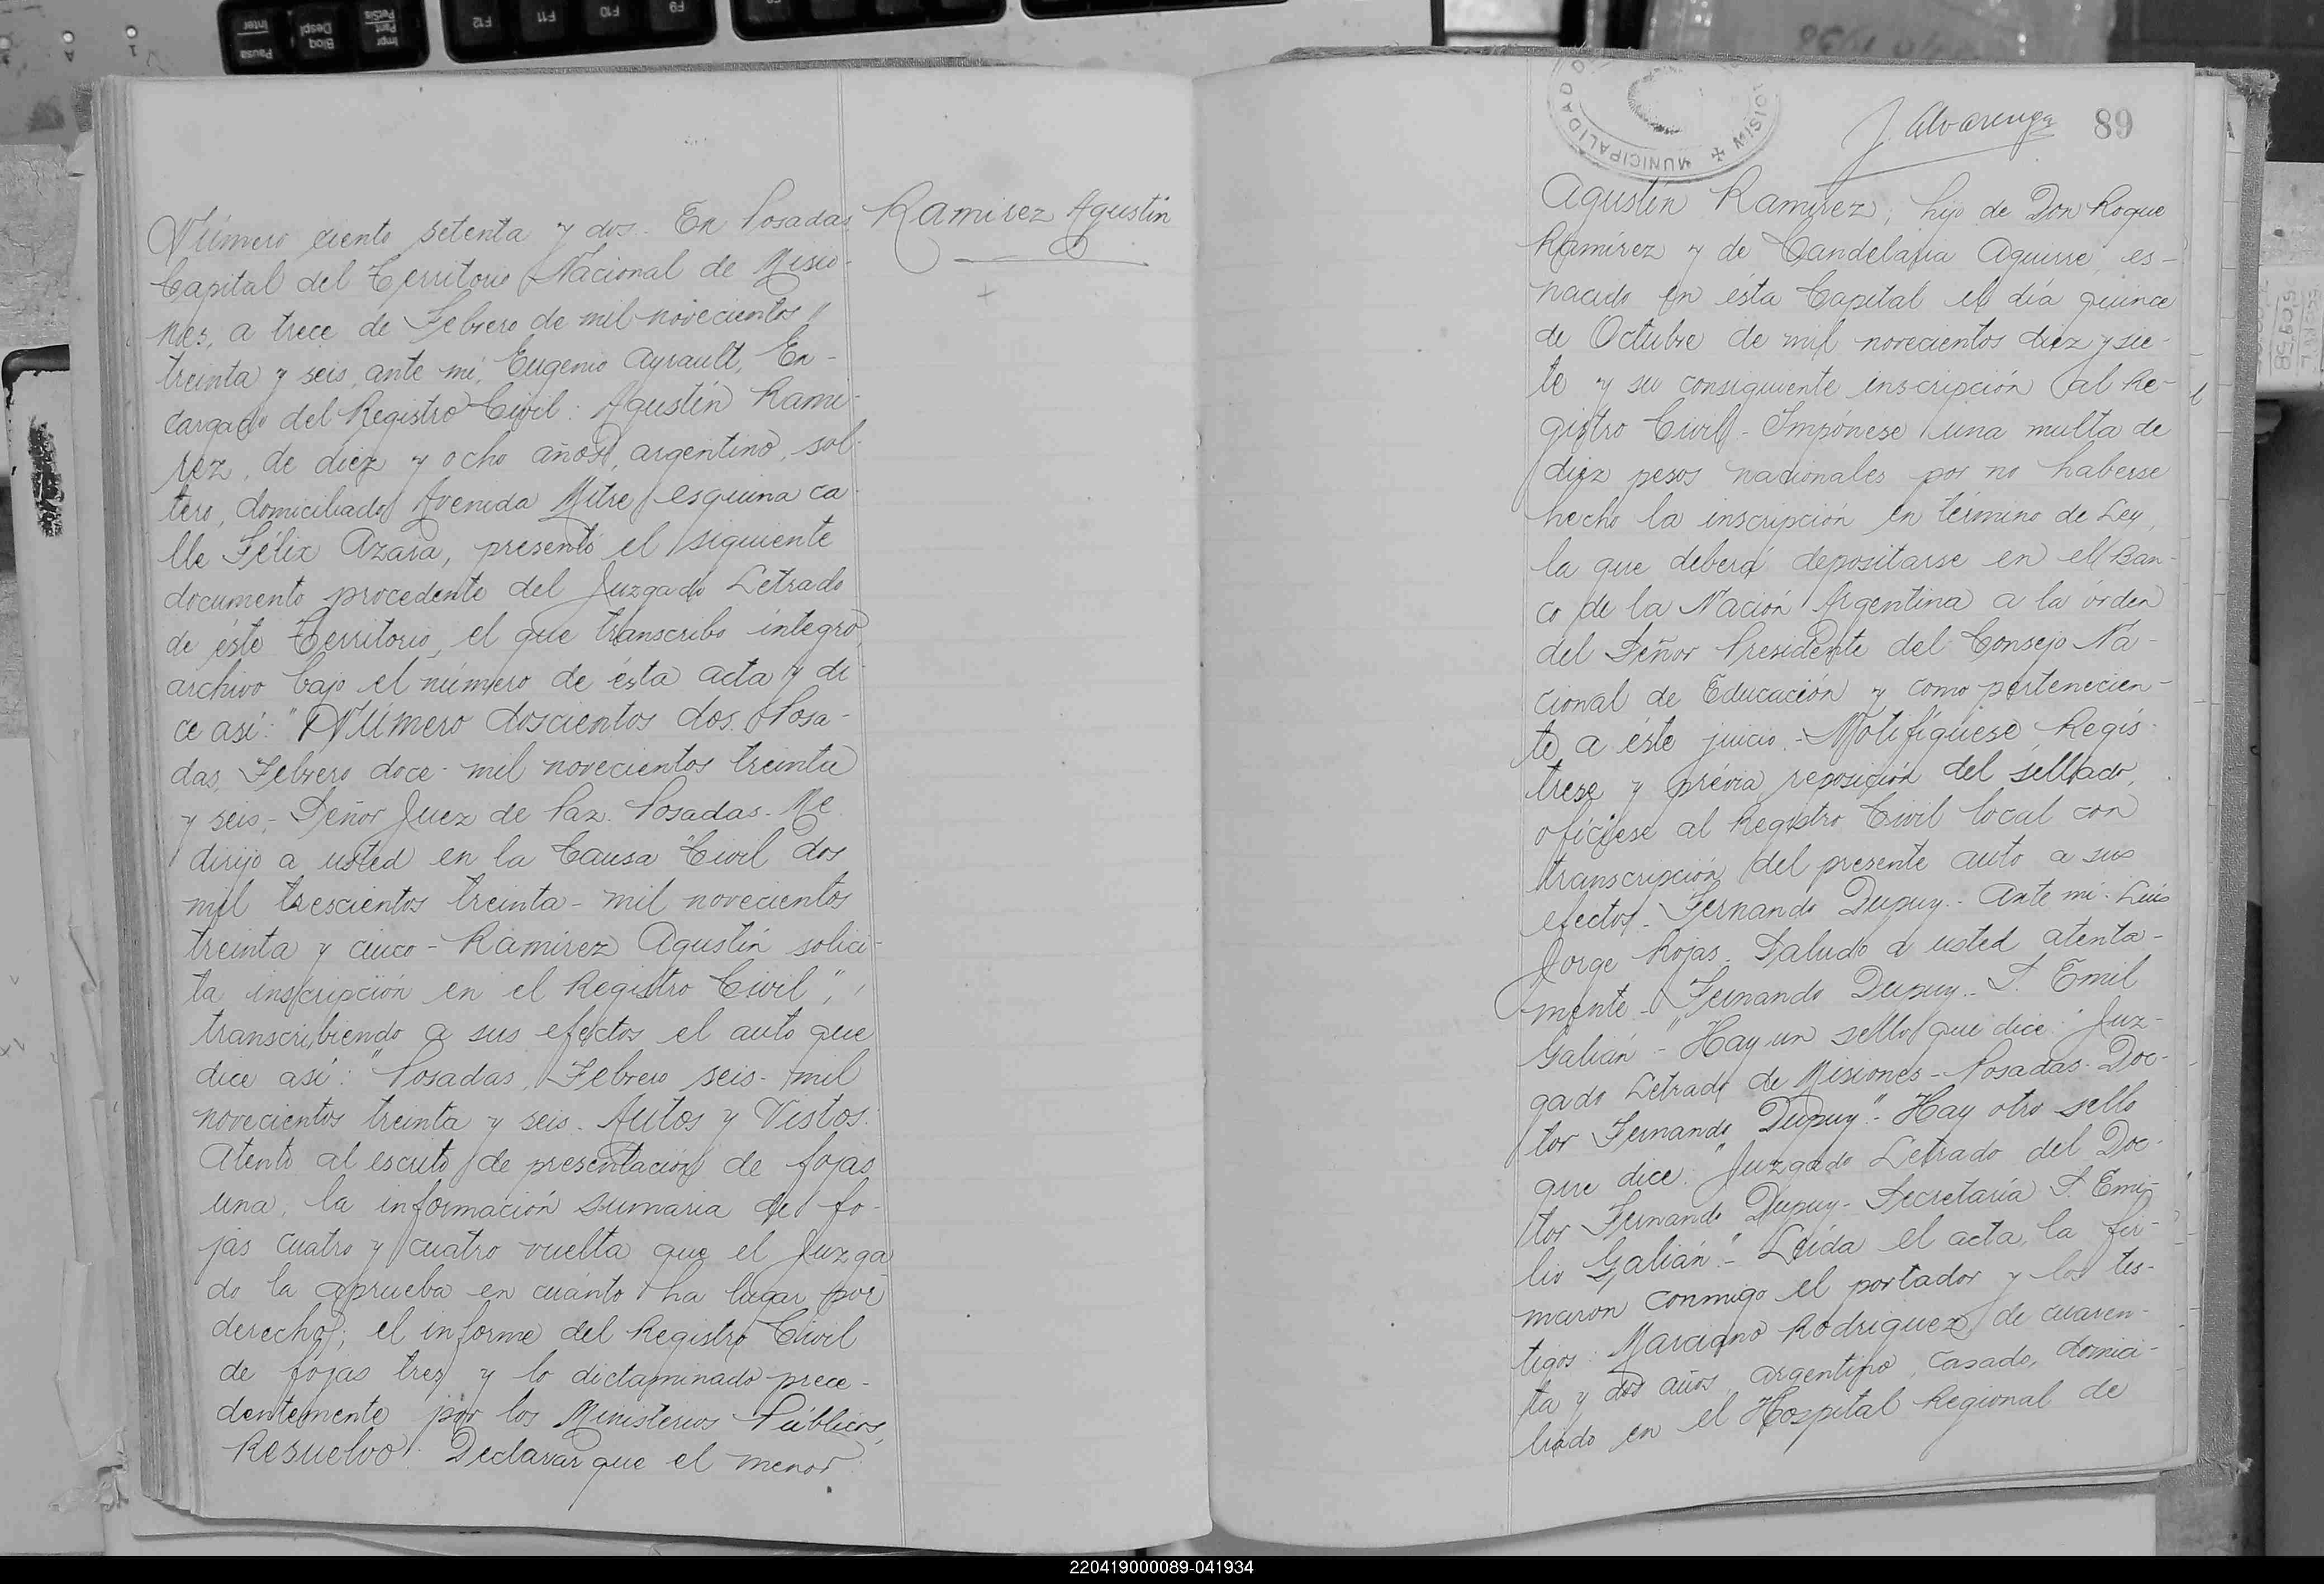 Número ciento setenta y dos. En Posadas
Capital del Territorio Nacional de Misio-
nes, a trece de Febrero de mil novecientos "
treinta y seis, ante mi, Eugenio Ayrault, En-
cargado del Registro Civil: Agustín Rami-
rez, de diez y ocho años, argentino, sol-
tero, domiciliado Avenida Mitre esquina ca-
lle Félix Azara, presentó el siguiente
documento procedente del Juzgado Letrado
de éste Territorio, el que transcribo íntegro,
archivo bajo el número de ésta acta y di-
ce así: "Número doscientos dos. Posa-
das, Febrero doce- mil novecientos treinta
y seis,- Señor Juez de Paz. Posadas- Me
dirijo a usted en la Causa Civil dos
mil trescientos treinta - mil novecientos
treinta y cinco - Ramírez Agustín solici-
ta inscripción en el Registro Civil",
transcribiendo a sus efectos el auto que
dice así: "Posadas, Febrero seis- mil
novecientos treinta y seis. Autos y Vistos:
Atento al escrito de presentación de fojas
una, la información sumaria de fo-
jas cuatro y cuatro vuelta que el Juzga-
do la aprueba en cuánto ha lugar por
derecho; el informe del Registro Civil
de fojas tres y lo dictaminado prece-
dentemente por los Ministerios Públicos,
Resuelvo: Declarar que el menor
Ramirez Agustín
J. Alvarenga
89
MUNICIPALIDAD
Agustín Ramírez, hijo de Don Roque
Ramírez y de Candelaria Aguirre, es-
nacido en ésta Capital el día quince
de Octubre de mil novecientos diez y sie-
te y su consiguiente inscripción al Re-
gistro Civil - Impónese una multa de
diez pesos nacionales por no haberse
hecho la inscripción en término de Ley,
la que deberá depositarse en el Ban-
co de la Nación Argentina a la órden
del Señor Presidente del Consejo Na-
cional de Educación y como pertenecien-
te a éste juicio.- Notifíquese, Regís-
trese y prévia reposición del sellado,
ofíciese al Registro Civil local con
transcripción del presente auto a sus
efectos- Fernando Dupuy.- Ante mi- Luis
Jorge Rojas. Saludo a usted atenta-
mente - Fernando Dupuy.- S. Emil
Galián" - Hay un sello que dice: "Juz-
gado Letrado de Misiones - Posadas- Doc-
tor Fernando Dupuy".- Hay otro sello
que dice: "Juzgado Letrado del Doc-
tor Fernando Dupuy- Secretaría S. Emi-
lio Galián".- Leída el acta, la fir-
maron conmigo el portador y los tes-
tigos: Marciano Rodriguez, de cuaren-
ta y dos años, argentino, casado, domici-
liado en el Hospital Regional de
220419000089-041934